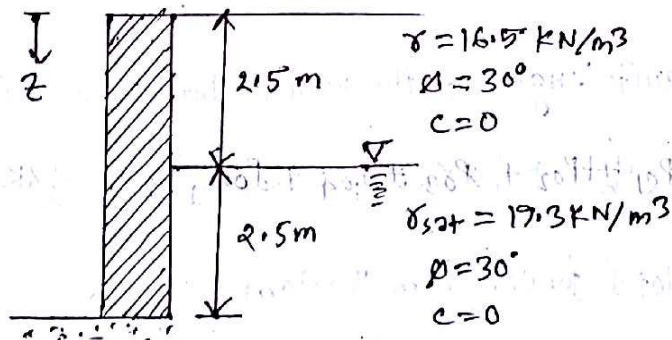 Z
2.5 m
γ = 16.5 KN/m³
ø = 30°
c = 0
2.5 m
γsat = 19.3 KN/m³
ø = 30°
c = 0